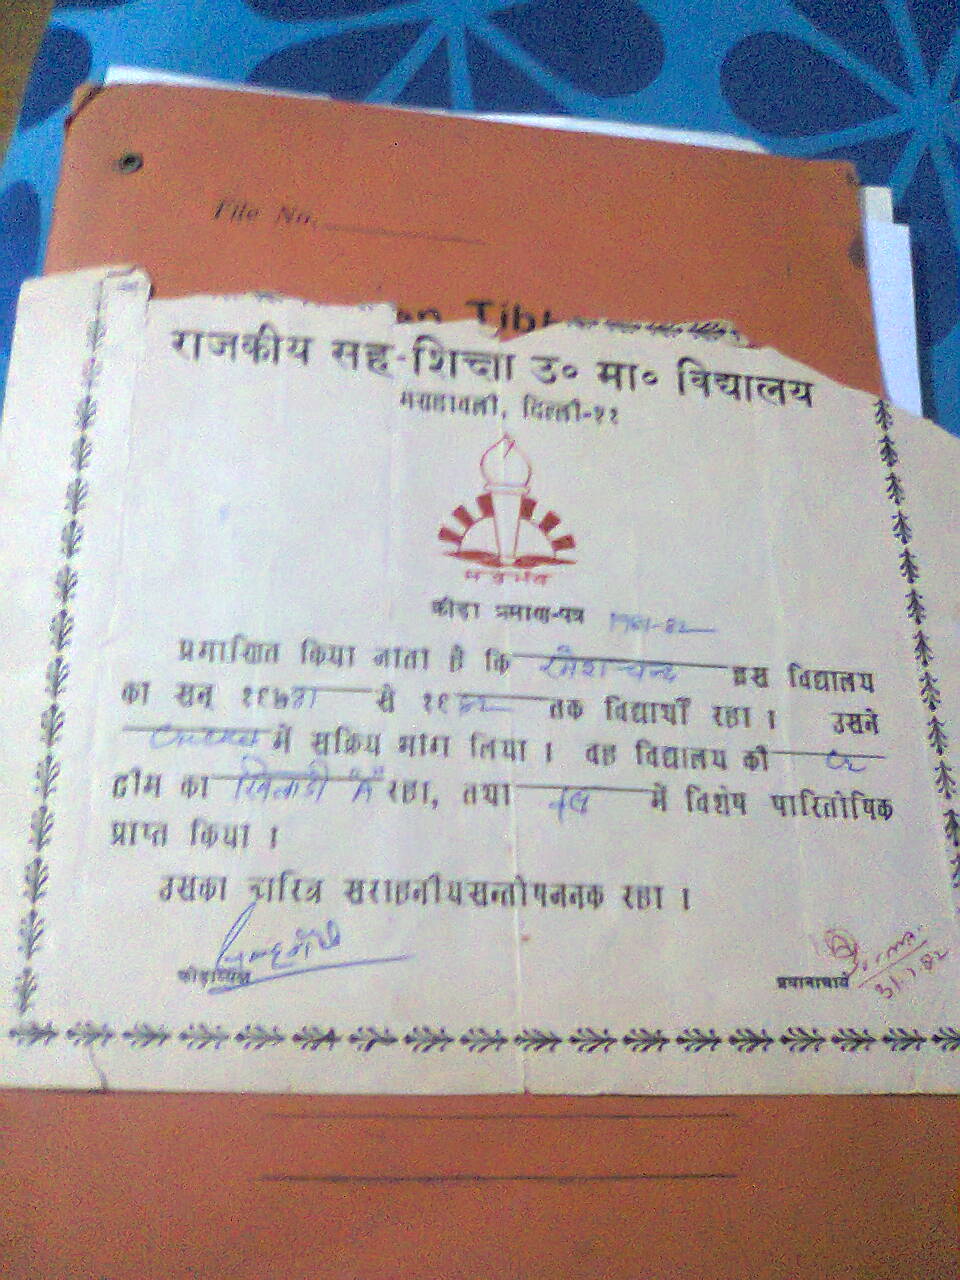 File No.
राजकीय सह-शिक्षा उ० मा० विद्यालय
दिल्ली-११
क्रीड़ा प्रमाण-पत्र 1981-82
प्रमाणित किया जाता है कि रमेश चन्द इस विद्यालय
का सन् १९७ से १९ तक विद्यार्थी रहा । उसने
में सक्रिय भाग लिया । वह विद्यालय की
टीम का खिलाड़ी रहा, तथा में विशेष पारितोषिक
प्राप्त किया ।
उसका चरित्र सराहनीय सन्तोषजनक रहा ।
क्रीड़ाध्यक्ष
प्रधानाचार्य
31.1.82